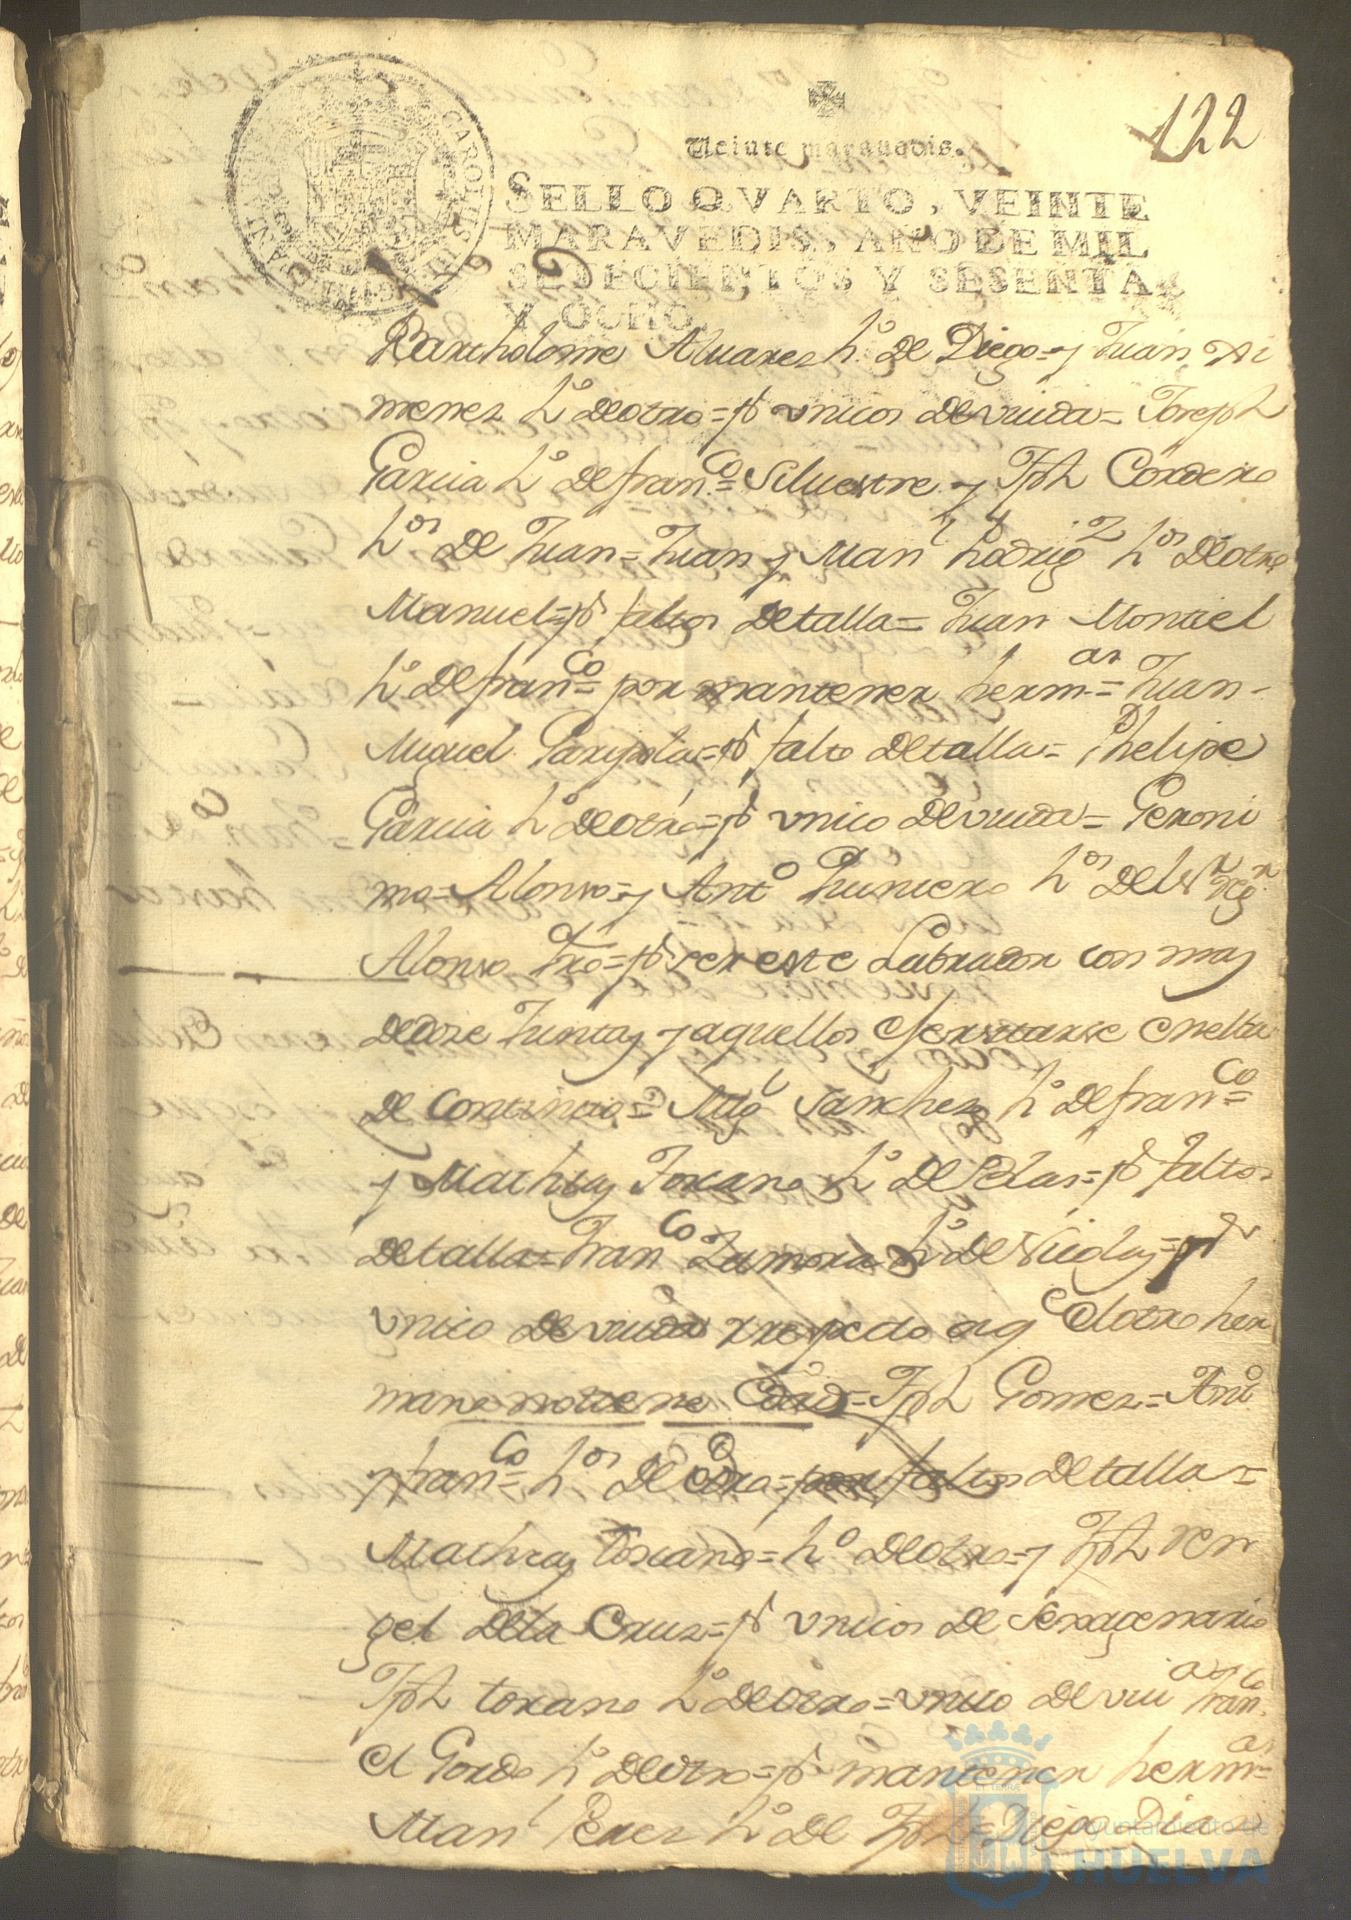 122
Veinte marauedis.
SELLO QVARTO, VEINTE
MARAVEDIS, AÑO DE MIL
SETECIENTOS Y SESENTA
Y OCHO.
Bartholome Aluarez h.º de Diego = y Juan Xi
menez h.º de otro = pr vnicos de viuda = Joseph
Garcia h.º de franco = Siluestre y Jph Cordero
h.os de Juan = Juan y Manl Rodrigz h.os de otro
Manuel = pr faltos de talla = Juan Montiel
h.º de franco = por mantener herm.as = Juan
Miguel = pr falto de talla = Phelipe
Garcia h.º de otro = pr vnico de viuda = Geroni
mo = Alonso = y Anto Quintero h.os del
Alonso Qro = pr ser este Labrador con mas
de dose Juntas y aquellos exersitarse en elta
de Continuo = Migl Sanchez h.º de franco =
y Mathias Toscano h.º de Blas = pr faltos
de talla = Franco Zamora h.º de Nicolas = pr
vnico de viuda respecto aqe el otro her
mano no tiene Edad = Jph Gomez = Anto
y franco = h.os de otro = por faltos de talla =
Mathias toscano = h.º de otro = y Jph ren
gel de la Cruz = pr vnicos de Sexagenario
Jph toscano h.º de otro = vnico de viuda franco
el Gordo h.º de otro = pr mantener herm.as =
Manl Perez h.º de Jph = Diego Dias
Ayuntamiento de
HUELVA